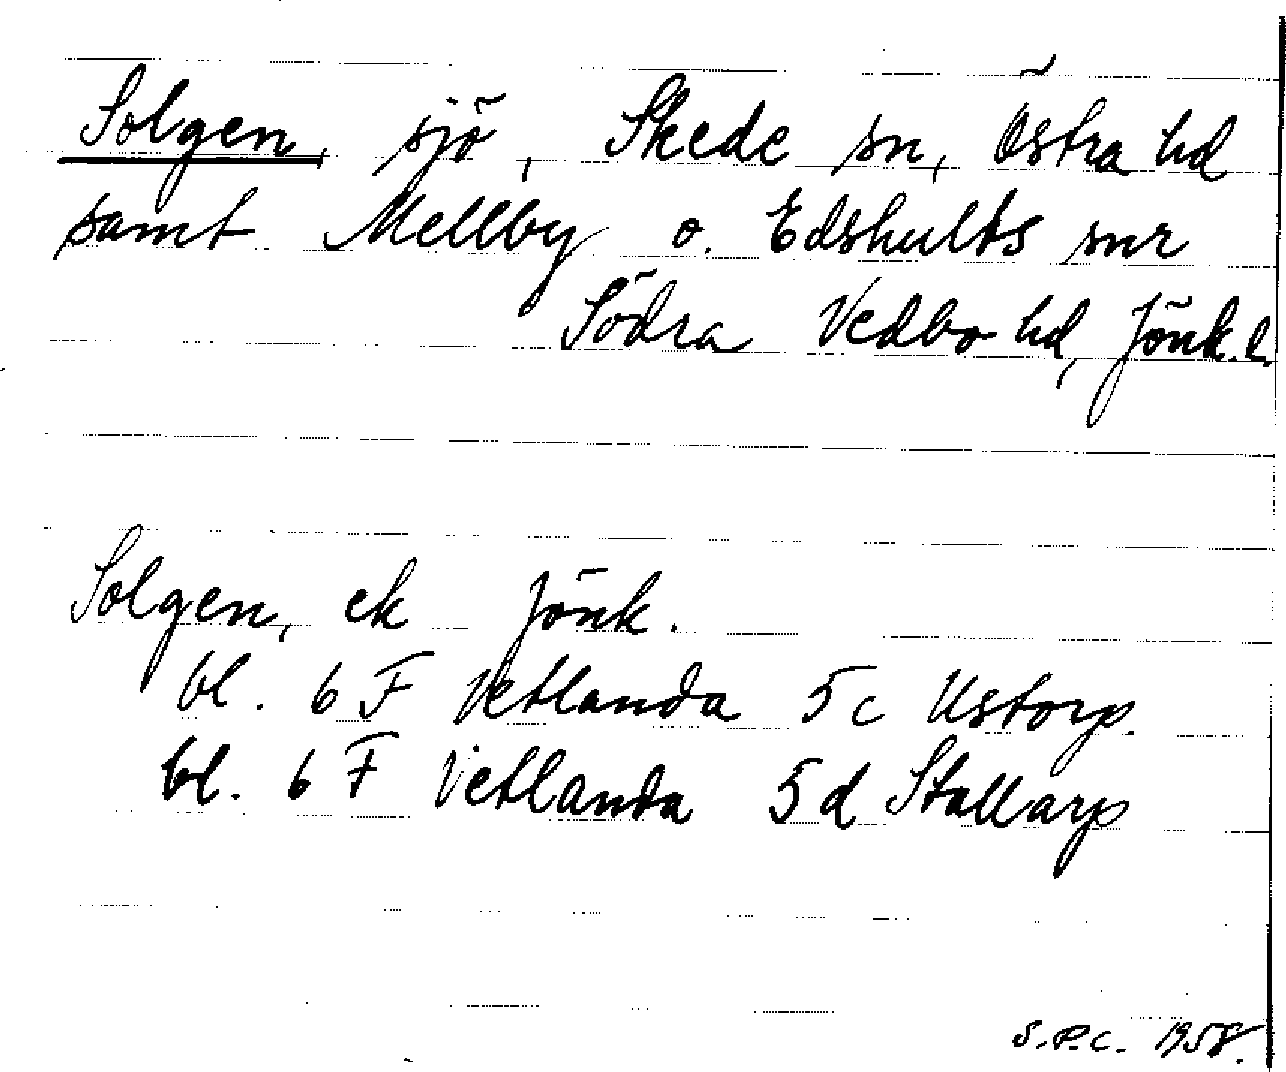 Solgen, sjö, Skede sn, Östra hd
samt Mellby o. Edshults snr
Södra Vedbo hd, Jönk. l.
Solgen, ek Jönk.
bl. 6 F Vetlanda 5c Ustorp.
bl. 6 F Vetlanda 5d Stallarp
S.P.C. 1958.